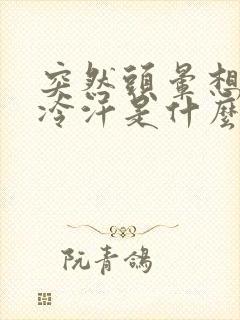 突然頭暈想
冷汗是什麼
阮青鴿